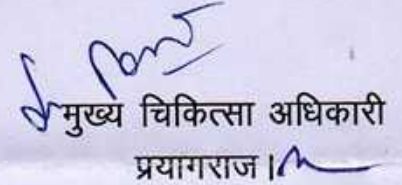 मुख्य चिकित्सा अधिकारी
प्रयागराज।